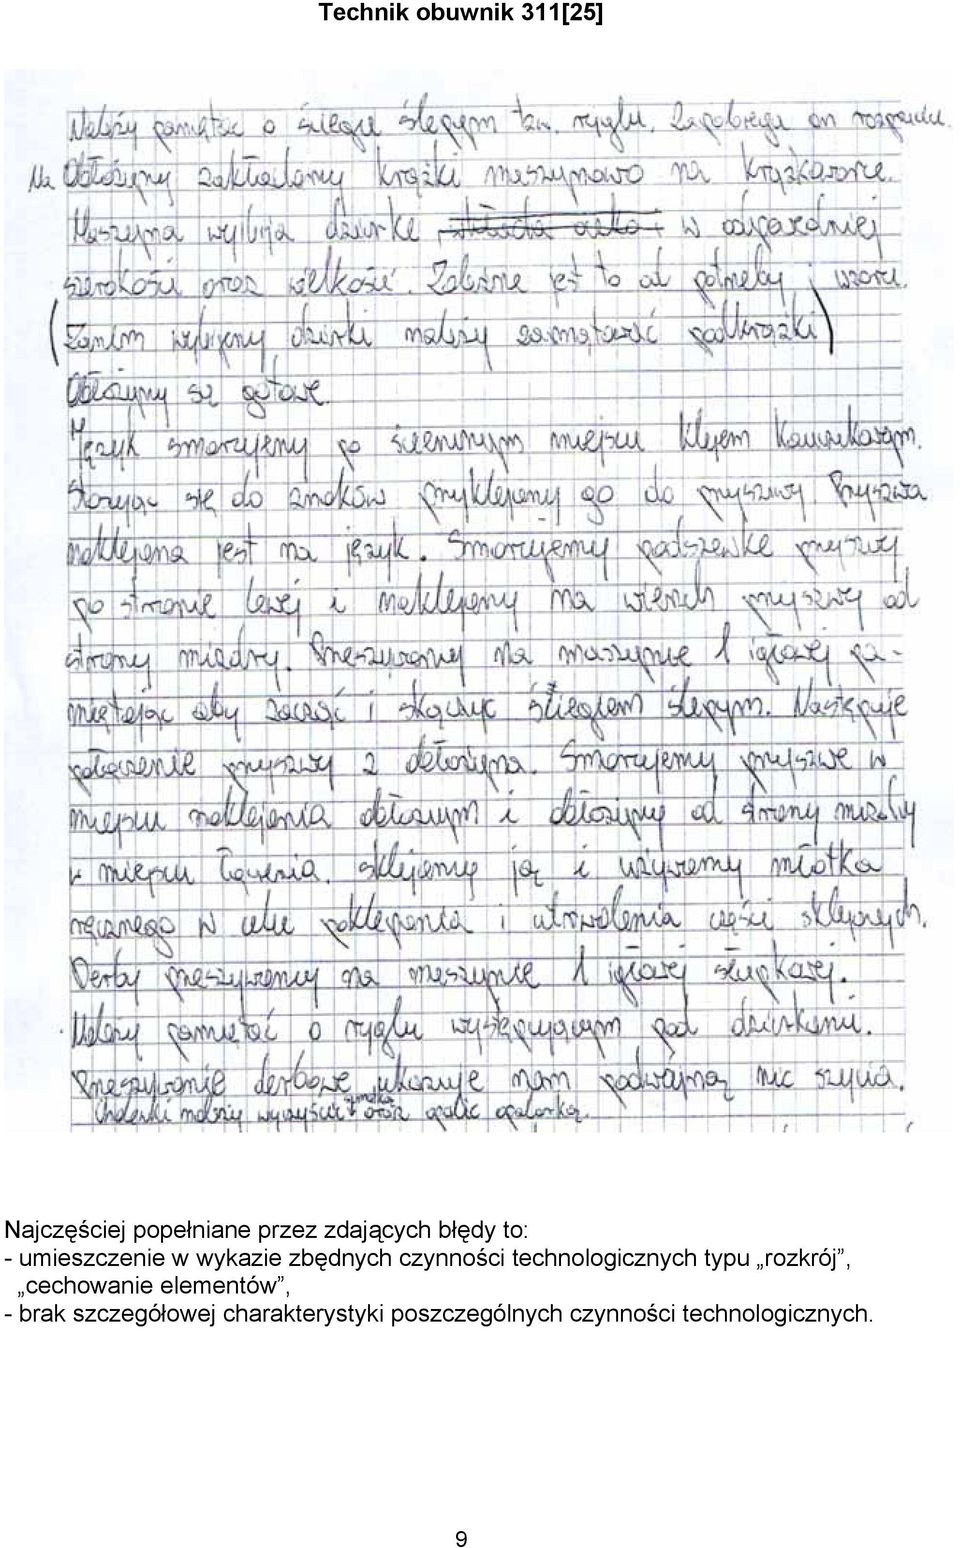 Technik obuwnik 311[25]
Należy pamiętać o ściegu ślepym tzw. ryglu. Zapobiega on rozpruciu.
Na Obłożyny zakładamy krążki maszynowo na krążkarce.
Maszyna wybija dziurkę, w odpowiedniej
szerokości oraz wielkości. Zależne jest to od potrzeby i wzoru.
(Zanim wybijemy dziurki należy zamotować podkrążki)
Obłożyny są gotowe.
Język smarujemy po ściennym miejscu klejem kauczukowym.
Stosując się do znaków przyklejemy go do przyszwy. Przyszwa
naklejona jest na język. Smarujemy podszewkę przyszwy
po stronie lewej i naklejemy na wierzch przyszwy od
strony mizdry. Przeszywamy na maszynie 1 igłowej pa-
miętając aby zacząć i skączyć ściegiem ślepym. Następuje
połączenie przyszwy z obłożyną. Smarujemy przyszwę w
miejscu naklejenia obłożyn i obłożyny od strony mizdry
w miejscu łączenia. sklejamy ją i używamy młotka
ręcznego w celu poklepania i utrwalenia części sklejonych.
Derby przeszywamy na maszynie 1 igłowej słupkowej.
Należy pamiętać o ryglu występującym pod dziurkami.
Przeszywanie derbowe ukazuje nam podwójną nić szycia.
Cholewki należy wyczyścić szmatką oraz opalić opalarką.
Najczęściej popełniane przez zdających błędy to:
- umieszczenie w wykazie zbędnych czynności technologicznych typu „rozkrój”,
„cechowanie elementów”,
- brak szczegółowej charakterystyki poszczególnych czynności technologicznych.
9